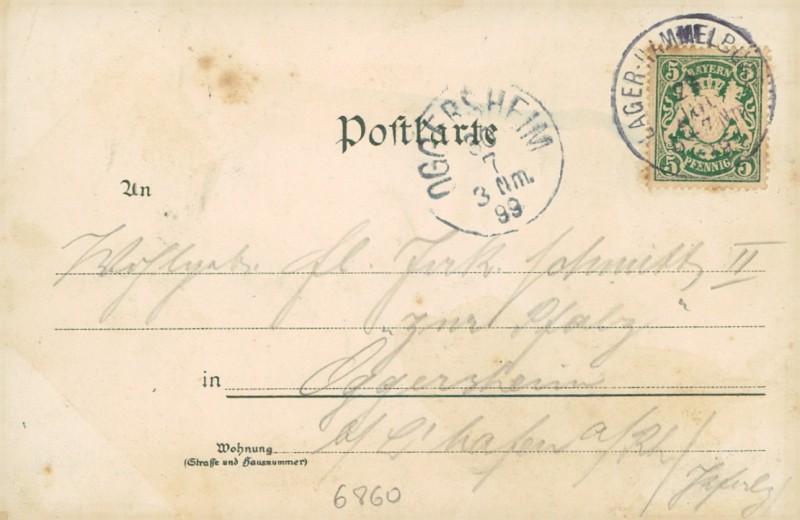 LAGER-HAMMELBU
5 BAYERN 5
5 PFENNIG 5
Postkarte
OGGERSHEIM
7
3 Nm.
99
An
Wohlgeb. Schmitt II
"zur Pfalz"
in Oggersheim
b/ L'hafen a/Rh.
Wohnung
(Straße und Hausnummer)
6860